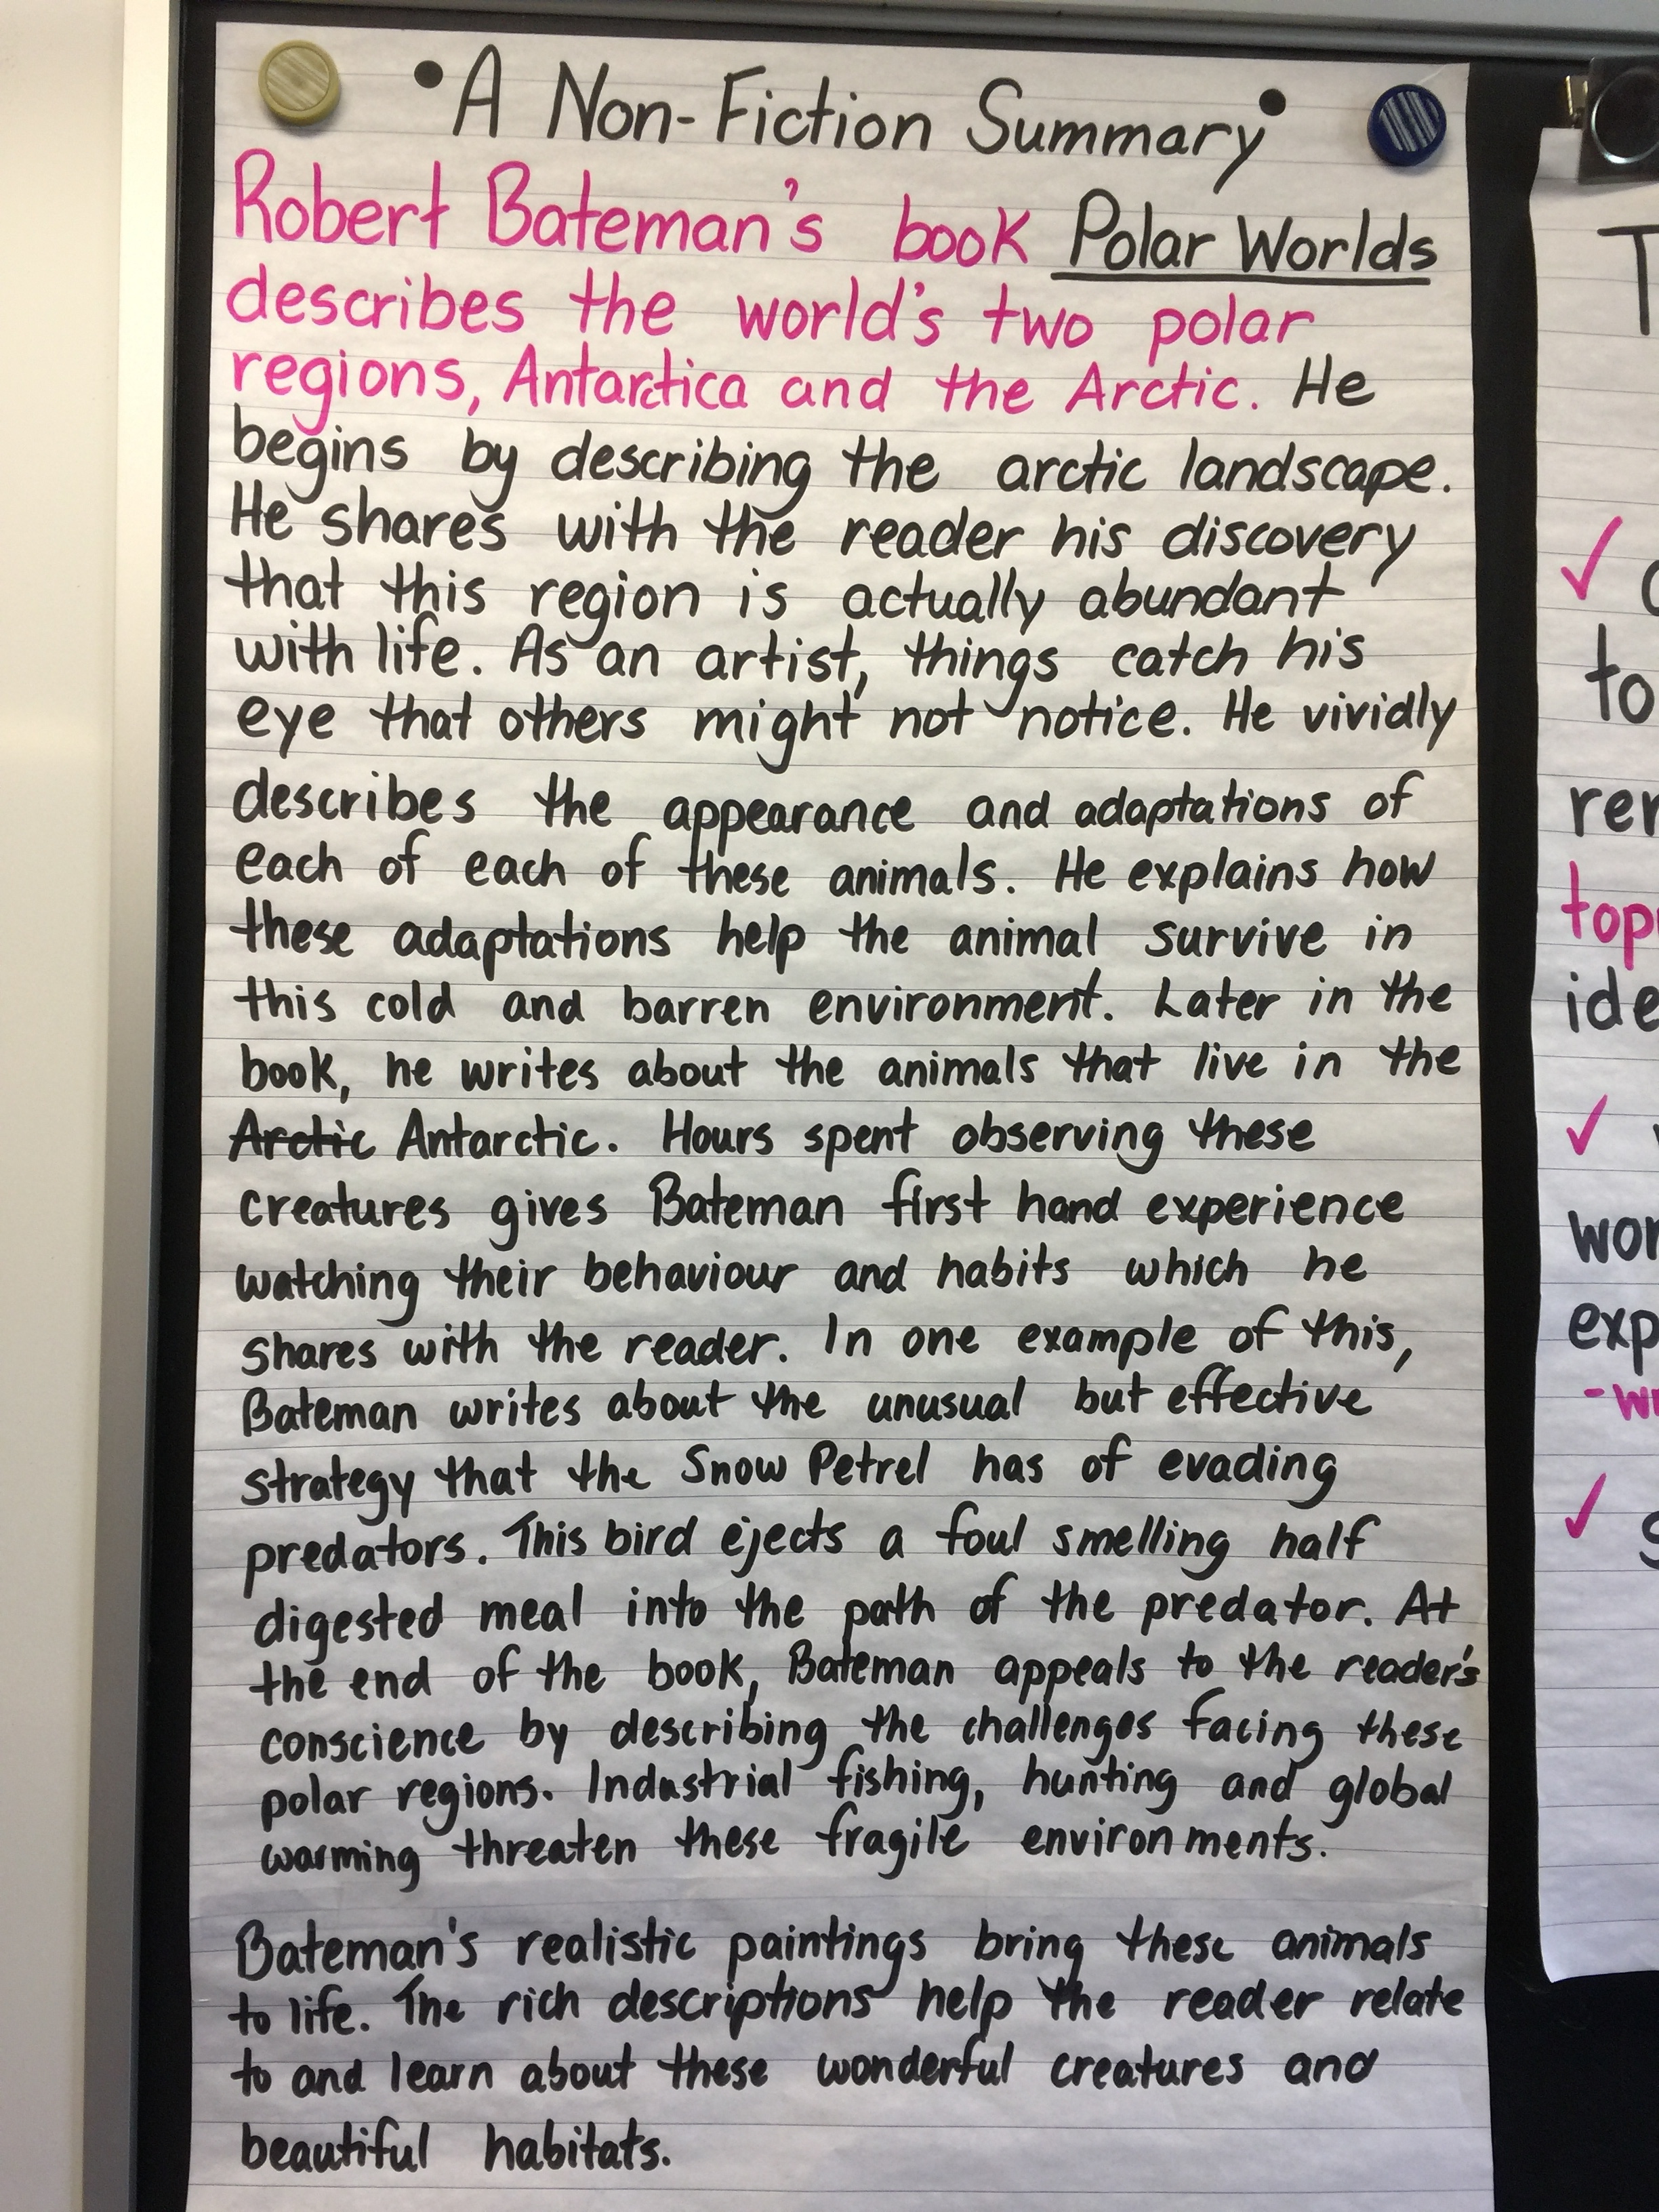 •A Non-Fiction Summary•
Robert Bateman's book Polar Worlds
describes the world's two polar
regions, Antarctica and the Arctic. He
begins by describing the arctic landscape.
He shares with the reader his discovery
that this region is actually abundant
with life. As an artist, things catch his
eye that others might not notice. He vividly
describes the appearance and adaptations of
each of each of these animals. He explains how
these adaptations help the animal survive in
this cold and barren environment. Later in the
book, he writes about the animals that live in the
Arctic Antarctic. Hours spent observing these
creatures gives Bateman first hand experience
watching their behaviour and habits which he
shares with the reader. In one example of this,
Bateman writes about the unusual but effective
strategy that the Snow Petrel has of evading
predators. This bird ejects a foul smelling half
digested meal into the path of the predator. At
the end of the book, Bateman appeals to the reader's
conscience by describing the challenges facing these
polar regions. Industrial fishing, hunting and global
warming threaten these fragile environments.
Bateman's realistic paintings bring these animals
to life. The rich descriptions help the reader relate
to and learn about these wonderful creatures and
beautiful habitats.
T
to